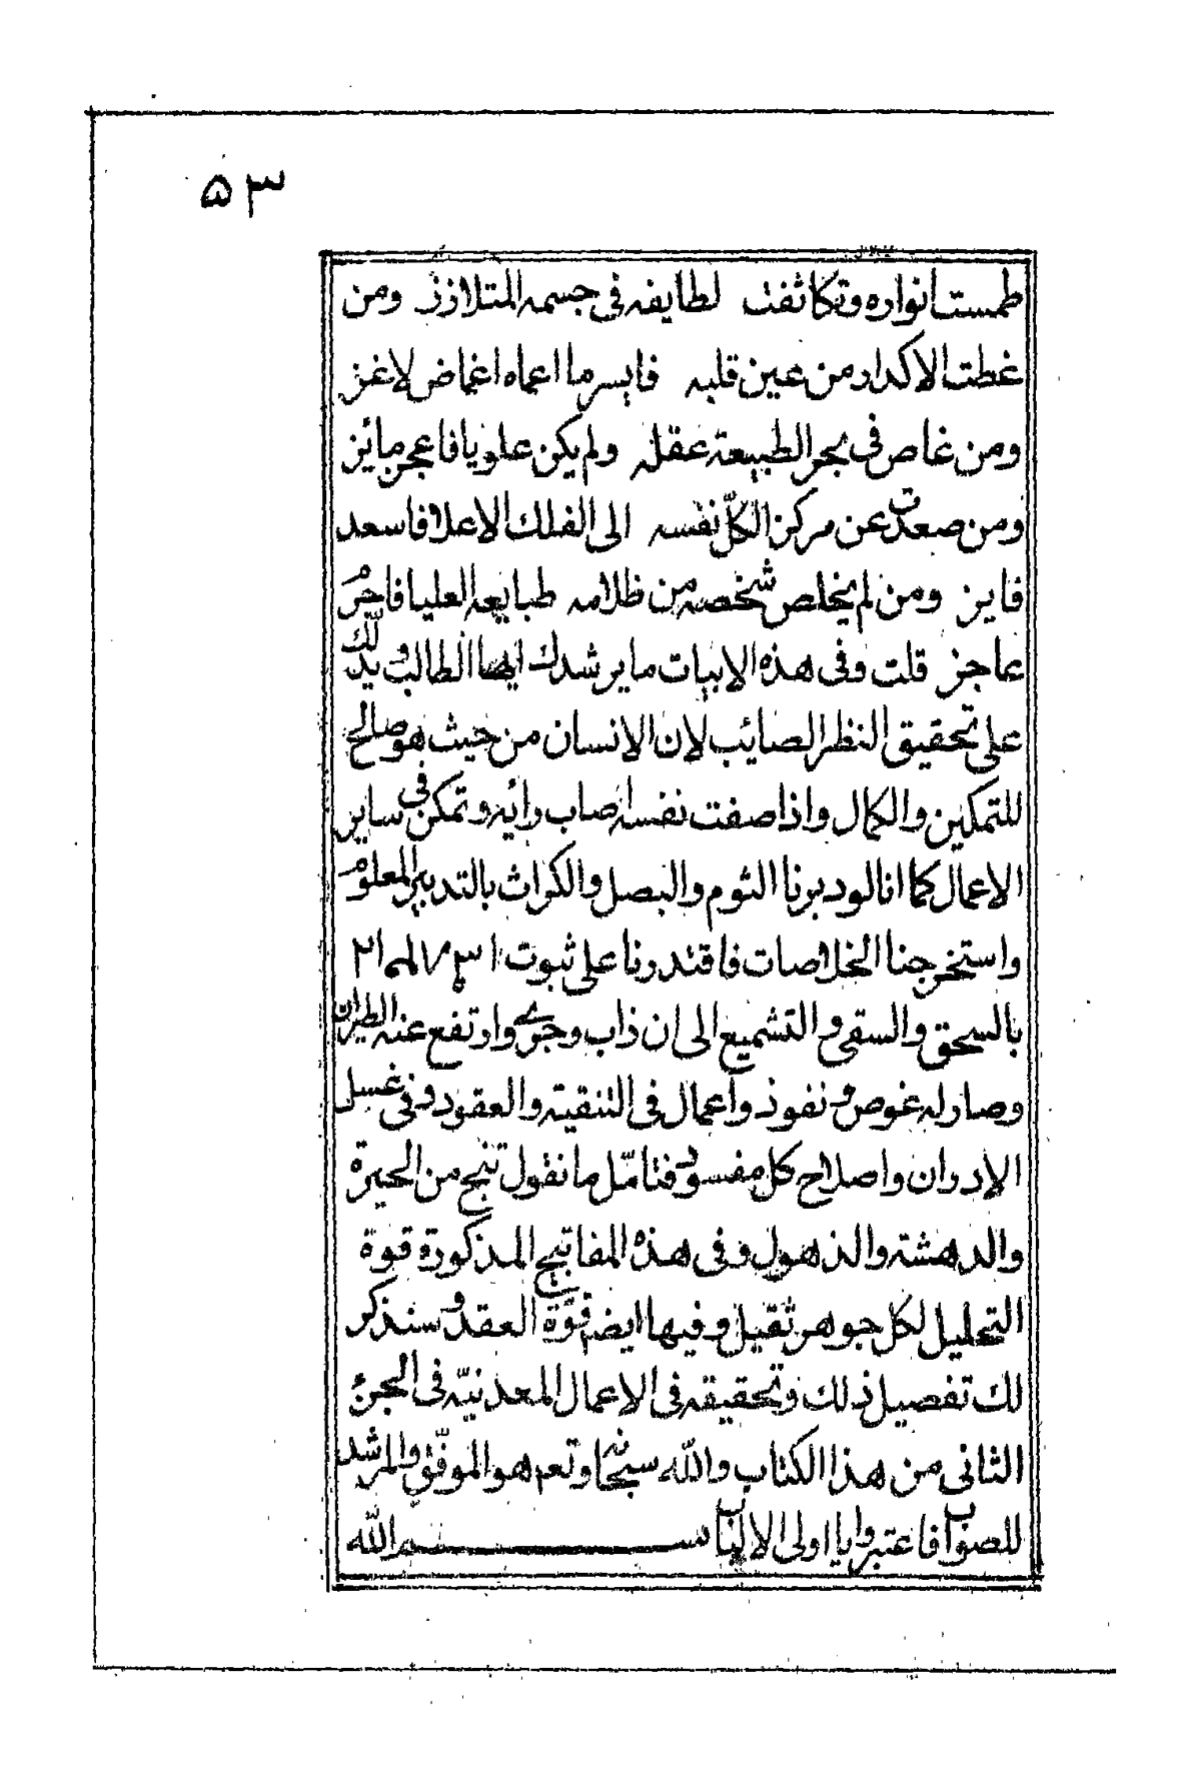 ۵۳
طمست انواره وتكاثفت لطايفه فى جسمه المتلازز ومن
غطت الاكدار من عين قلبه فايسر ما اعماه اغماض لاغز
ومن غاص فى بحر الطبيعة عقله ولم يكن علويا فاعجز مائز
ومن صعدت عن مركز الكلّ نفسه الى الفلك الاعلا فاسعد
فايز ومن لم يخلص شخصه من ظلامه طبايعه العليا فاحر
عاجز قلت وفى هذه الابيات ما يرشدك ايها الطالب ويدلّك
على تحقيق النظر الصائب لان الانسان من حيث هو صالح
للتمكين والكمال واذا صفت نفسه صاب رائيه وتمكن فى ساير
الاعمال كما انا لو دبرنا الثوم والبصل والكراث بالتدبير المعلوم
واستخرجنا الخلاصات فاقتدرنا على ثبوت
بالسحق والسقى والتشميع الى ان ذاب وجرى وارتفع عنه الطيران
وصار له غوص ونفوذ واعمال فى التنقية والعقود وفى غسل
الادران واصلاح كل مفسود فتامّل ما نقول تنج من الحيرة
والدهشة والذهول وفى هذه المفاتيح المذكورة قوة
التحليل لكل جوهر ثقيل وفيها ايضا قوّة العقد وسنذكر
لك تفصيل ذلك وتحقيقه فى الاعمال المعدنيّه فى الجزء
الثانى من هذا الكتاب والله سبحانه وتعم هو الموفّق والمرشد
للصواب فاعتبروا يا اولى الالباب بسم الله